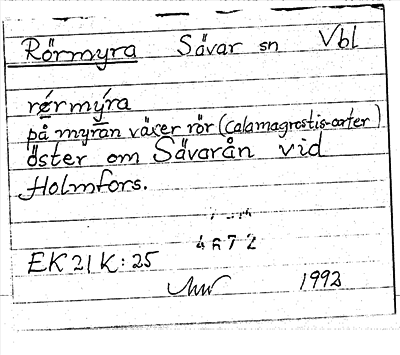 Rörmyra Sävar sn Vbl
rö́rmýra
på myran växer rör (Calamagrostis-arter)
öster om Sävarån vid
Holmfors.
4672
EK 21K:25
1992